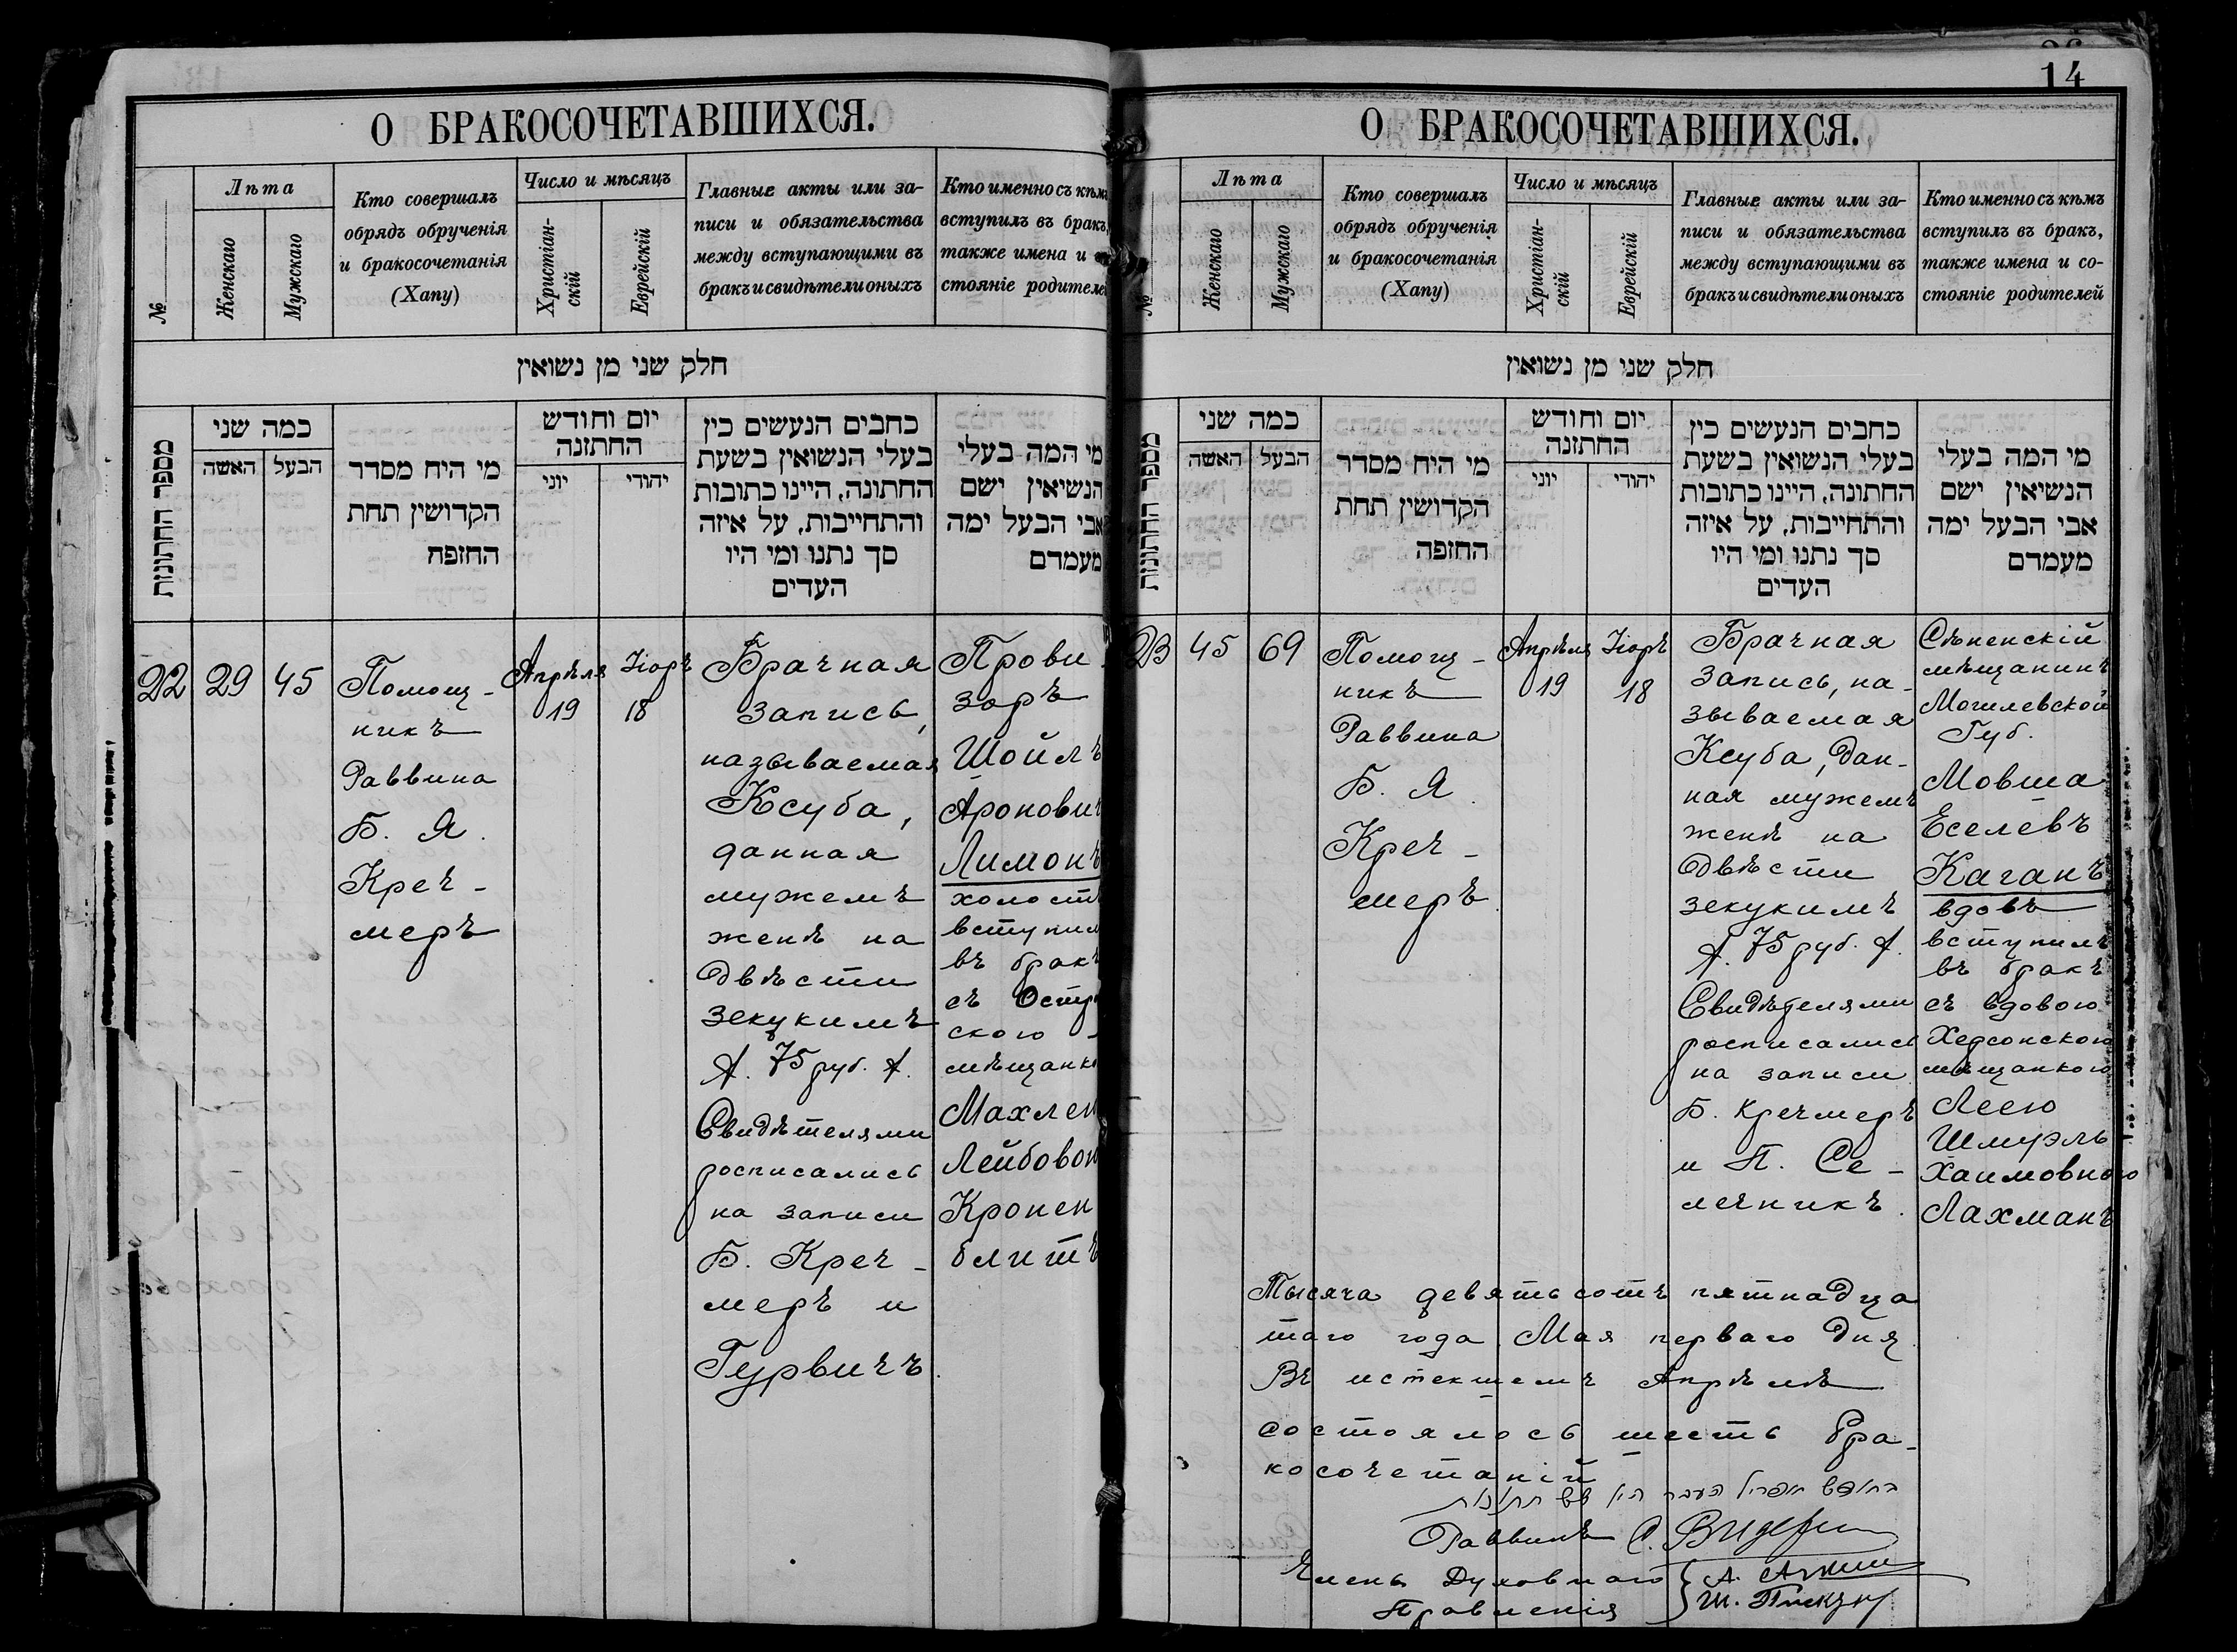 О БРАКОСОЧЕТАВШИХСЯ.
№
Лѣта
Женскаго
Мужскаго
Кто совершалъ
обрядъ обрученія
и бракосочетанія
(Хапу)
Число и мѣсяцъ
Христіан-
скій
Еврейскій
Главные акты или за-
писи и обязательства
между вступающими въ
бракъ и свидѣтели оныхъ
Кто именно съ кѣмъ
вступилъ въ бракъ,
также имена и
стояніе родителей
חלק שני מן נשואין
מספר החתונות
כמה שני
האשה
הבעל
מי היח מסדר
הקדושין תחת
החופה
יום וחודש
החתונה
יוני
יהודי
כחבים הנעשים כין
בעלי הנשואין בשעת
החתונה, היינו כתובות
והתחייבות, על איזה
סך נתנו ומי היו
העדים
מי המה בעלי
הנשיאין ישם
אבי הבעל ימה
מעמדם
22
29
45
Помощ-
никъ
Раввина
Б. Я.
Креч-
меръ
Апрѣля
19
Іюръ
18
Брачная
запись,
называемая
Ксуба,
данная
мужемъ
женѣ на
двѣсти
зекукимъ
75 руб.
Свидѣтелями
росписались
на записи
Б. Креч-
меръ и
Гурвичъ.
Прови-
зоръ
Шойлъ
Ароновичъ
Лимонъ
холостъ
вступилъ
въ бракъ
съ
ского
мѣщанкою
Махлею
Лейбовою
Кронен
блитъ
14
О БРАКОСОЧЕТАВШИХСЯ.
№
Лѣта
Женскаго
Мужскаго
Кто совершалъ
обрядъ обрученія
и бракосочетанія
(Хапу)
Число и мѣсяцъ
Христіан-
скій
Еврейскій
Главные акты или за-
писи и обязательства
между вступающими въ
бракъ и свидѣтели оныхъ
Кто именно съ кѣмъ
вступилъ въ бракъ,
также имена и со-
стояніе родителей
חלק שני מן נשואין
מספר החתונות
כמה שני
האשה
הבעל
מי היח מסדר
הקדושין תחת
החופה
יום וחודש
החתונה
יוני
יהודי
כחבים הנעשים כין
בעלי הנשואין בשעת
החתונה, היינו כתובות
והתחייבות, על איזה
סך נתנו ומי היו
העדים
מי המה בעלי
הנשיאין ישם
אבי הבעל ימה
מעמדם
23
45
69
Помощ-
никъ
Раввина
Б. Я.
Креч-
меръ.
Апрѣля
19
Іюръ
18
Брачная
запись, на-
зываемая
Ксуба, дан-
ная мужемъ
женѣ на
двѣсти
зекукимъ
75 руб.
Свидѣтелями
росписались
на записи
Б. Кречмеръ
и П. Се-
лечникъ.
Сѣненскій
мѣщанинъ
Могилевской
Губ.
Мовша
Еселевъ
Каганъ
вдовъ
вступилъ
въ бракъ
съ вдовою
Херсонскою
мѣщанкою
Леею
Шмуэль
Хаимовною
Лахманъ
Тысяча девятьсотъ пятнадца
таго года Мая перваго дня
Въ истекшемъ Апрѣлѣ
состоялось шесть бра-
косочетаній
Раввинъ
Члены Духовнаго
Правленія